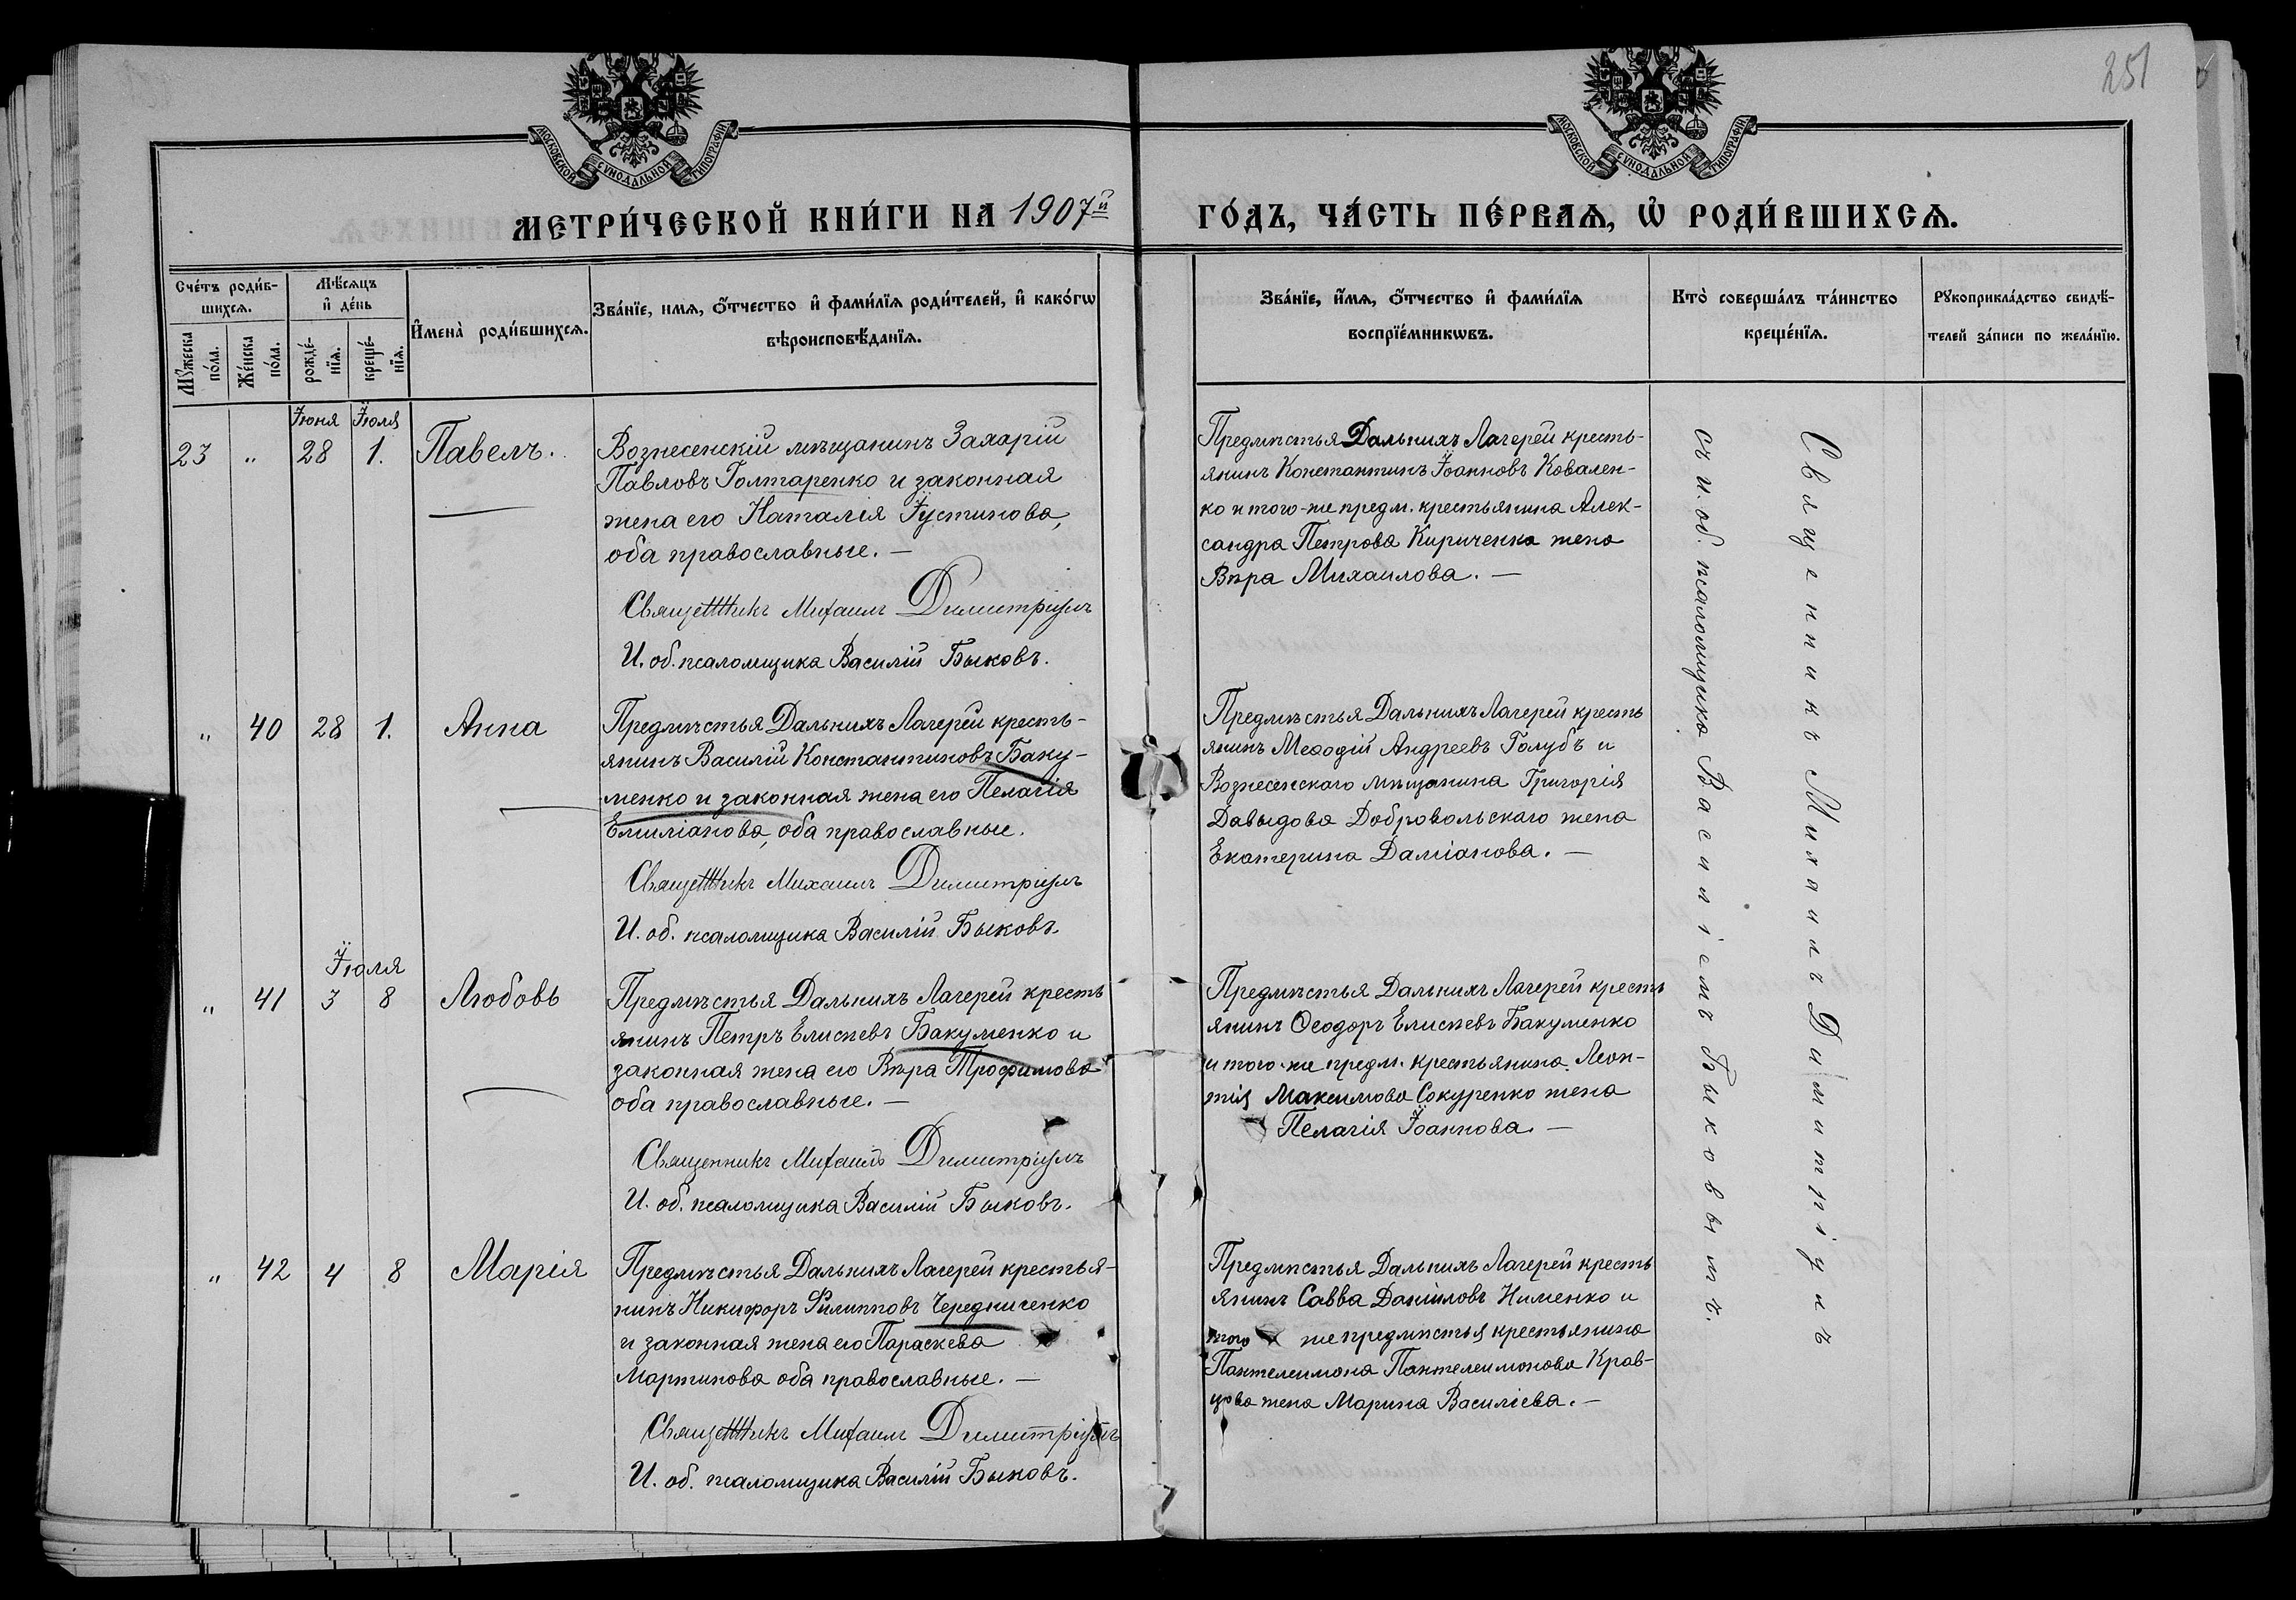 251
МОСКОВСКОЙ СѴНОДАЛЬНОЙ ТИПОГРАФІИ
МОСКОВСКОЙ СѴНОДАЛЬНОЙ ТИПОГРАФІИ
МЕТРИ́ЧЕСКОЙ КНИ́ГИ НА 1907й
ГО́ДЪ, ЧА́СТЬ ПЕ́РВАѦ, Ѡ҆ РОДИ́ВШИХСѦ.
Сче́тъ роди́в-
шихсѧ.
Мѣ́сѧцъ
и҆ де́нь
Мꙋ́жеска
по́ла.
Же́нска
по́ла.
рожде́-
нїѧ.
креще́-
нїѧ.
И҆мена̀ роди́вшихсѧ.
Зва́нїе, имѧ, ѻ҆́тчество и҆ фами́лїѧ роди́телей, и҆ како́гѡ
вѣроисповѣ́данїѧ.
Зва́нїе, и҆́мѧ, ѻ҆́тчество и҆ фами́лїѧ
воспрїе́мникѡвъ.
Кто̀ соверша́лъ та́инство
креще́нїѧ.
Рꙋкоприкла́дство свидѣ́-
телей за́писи по жела́нїю.
Іюня Іюля
23 " 28 1. Павелъ.
Вознесенскій мѣщанинъ Захарій
Павловъ Голтаренко и законная
жена его Наталія Іустинова,
оба православные. —
Священникъ Михаилъ Димитріулъ
И. об. псаломщика Василій Быковъ.
Предмѣстья Дальнихъ Лагерей кресть-
янинъ Константинъ Іоанновъ Ковален-
ко и того-же предм. крестьянина Алек-
сандра Петрова Кириченка жена
Вѣра Михаилова. —
" 40 28 1. Анна
Предмѣстья Дальнихъ Лагерей кресть-
янинъ Василій Константиновъ Баку-
менко и законная жена его Пелагія
Емиліанова, оба православные.
Священникъ Михаилъ Димитріулъ
И. об. псаломщика Василій Быковъ.
Предмѣстья Дальнихъ Лагерей кресть
янинъ Меѳодій Андреевъ Голубъ и
Вознесенскаго мѣщанина Григорія
Давыдова Добровольскаго жена
Екатерина Даміанова. —
Іюля
" 41 3 8 Любовь
Предмѣстья Дальнихъ Лагерей кресть
янинъ Петръ Елисѣевъ Бакуменко и
законная жена его Вѣра Трофимова
оба православные. —
Священникъ Михаилъ Димитріулъ
И. об. псаломщика Василій Быковъ.
Предмѣстья Дальнихъ Лагерей кресть
янинъ Ѳеодоръ Елисѣевъ Бакуменко
и того-же предм. крестьянина Леон-
тія Максимова Сокуренко жена
Пелагія Іоаннова. —
" 42 4 8 Марія
Предмѣстья Дальнихъ Лагерей крестья-
нинъ Никифоръ Филипповъ Чередниченко
и законная жена его Параскева
Мартинова оба православные. —
Священникъ Михаилъ Димитріулъ
И. об. псаломщика Василій Быковъ.
Предмѣстья Дальнихъ Лагерей кресть
янинъ Савва Даніиловъ Нименко и
того же предмѣстья крестьянина
Пантелеимона Пантелеимонова Крав-
цова жена Марина Василіева. —
Священникъ Михаилъ Димитріулъ
съ и. об. псаломщика Василіемъ Быковымъ.